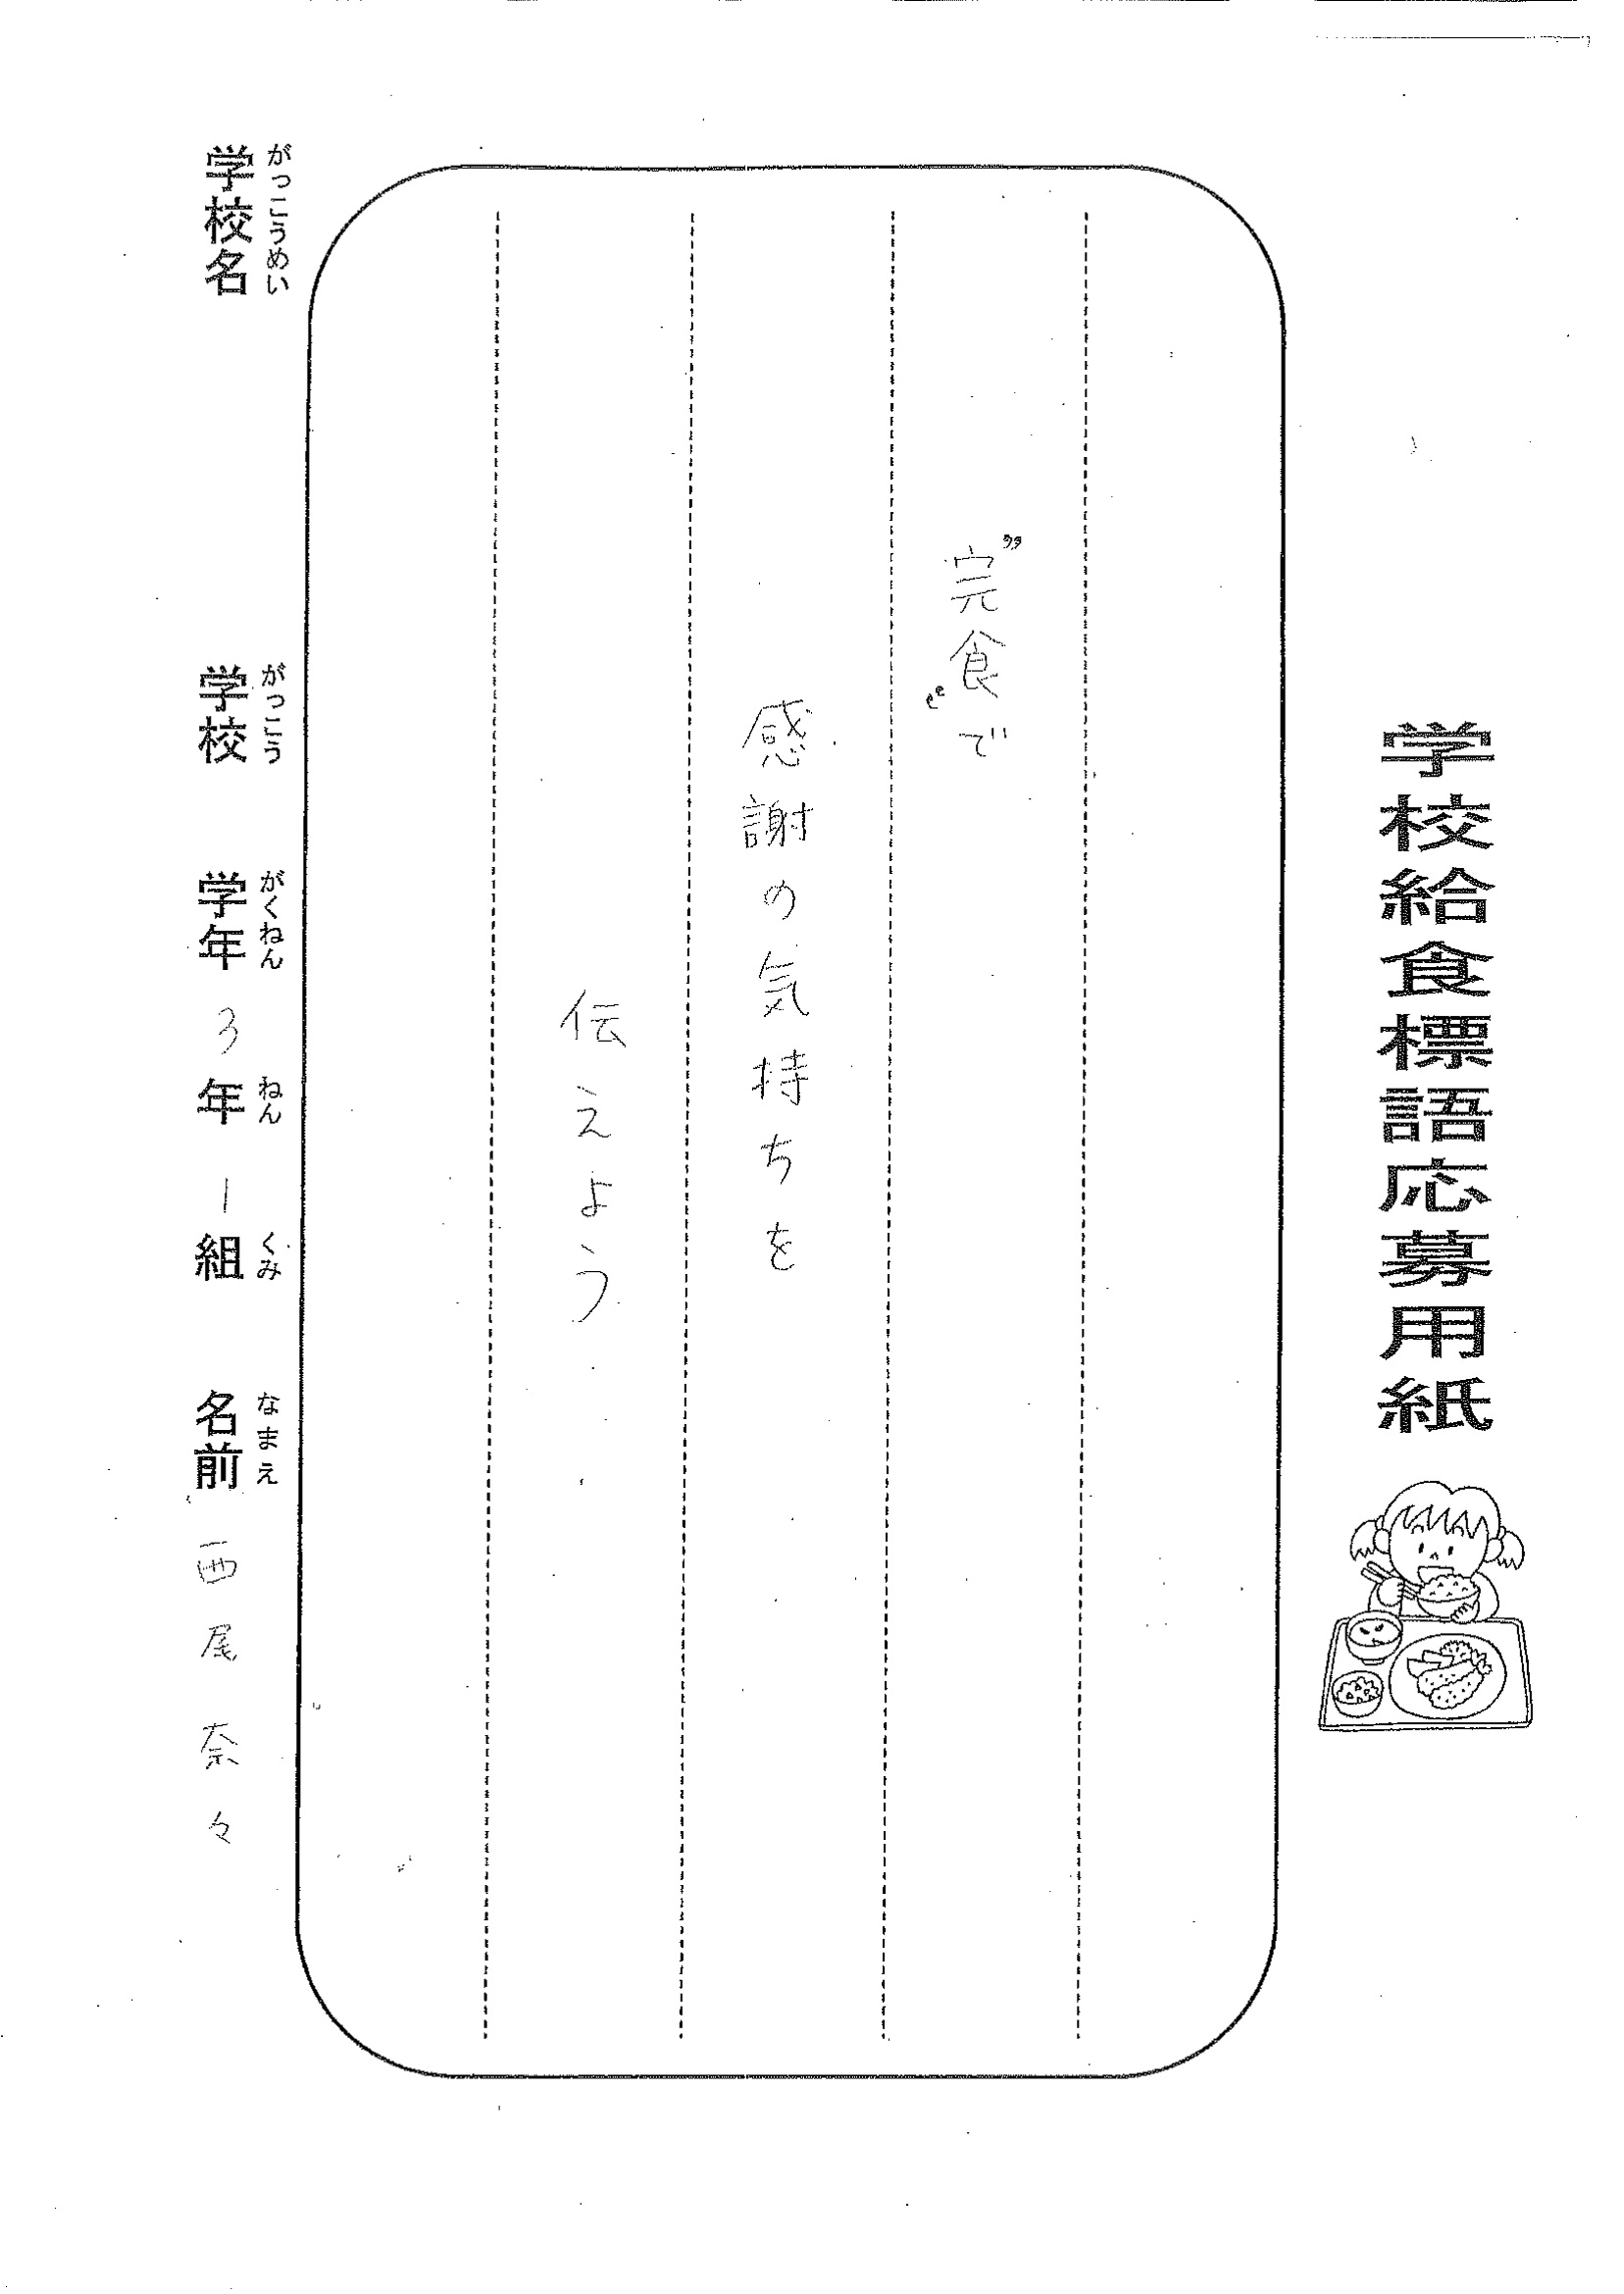 学校給食標語応募用紙
”完食“で
感謝の気持ちを
伝えよう
がっこうめい がっこう がくねん ねん くみ なまえ
学校名 学校 学年 3年 1組 名前 西尾奈々